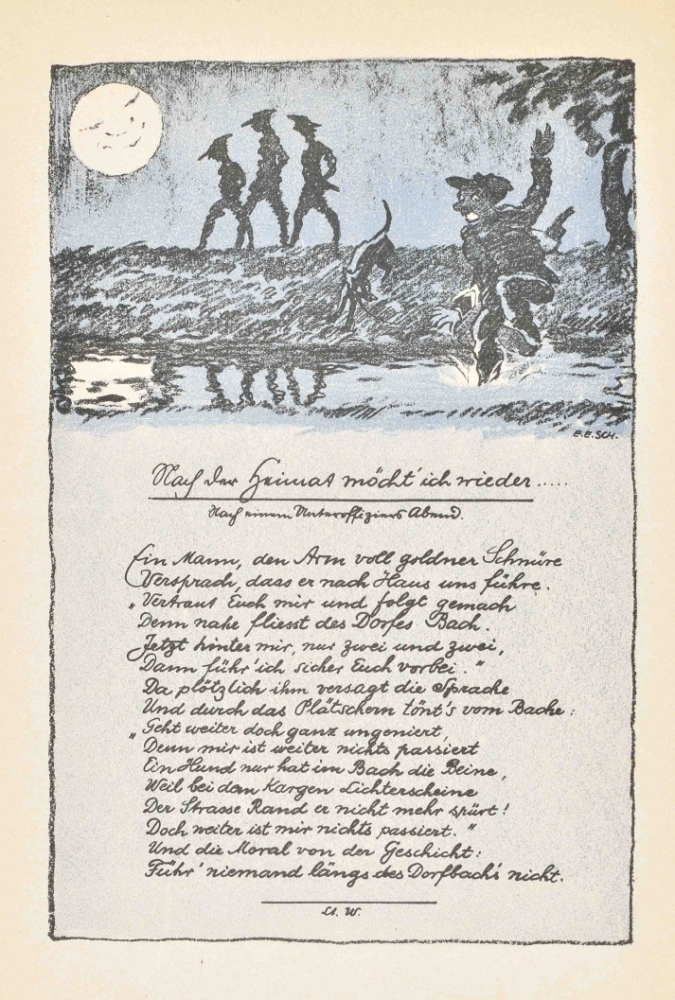 E.E.SCH.
Nach der Heimat möcht' ich wieder.....
Nach einem Unteroffiziers Abend.
Ein Mann, den Arm voll goldner Schnüre
Versprach, dass er nach Haus uns führe.
"Vertraut Euch mir und folgt gemach
Denn nahe fliesst des Dorfes Bach.
Jetzt hinter mir, nur zwei und zwei,
Dann führ' ich sicher Euch vorbei."
Da plötzlich ihm versagt die Sprache
Und durch das Plätschern tönt's vom Bache:
"Geht weiter doch ganz ungeniert,
Denn mir ist weiter nichts passiert
Ein Hund nur hat im Bach die Beine,
Weil bei dem kargen Lichterscheine
Der Strasse Rand er nicht mehr spürt!
Doch weiter ist mir nichts passiert."
Und die Moral von der Geschicht:
Führ' niemand längs des Dorfbach's nicht.
W.